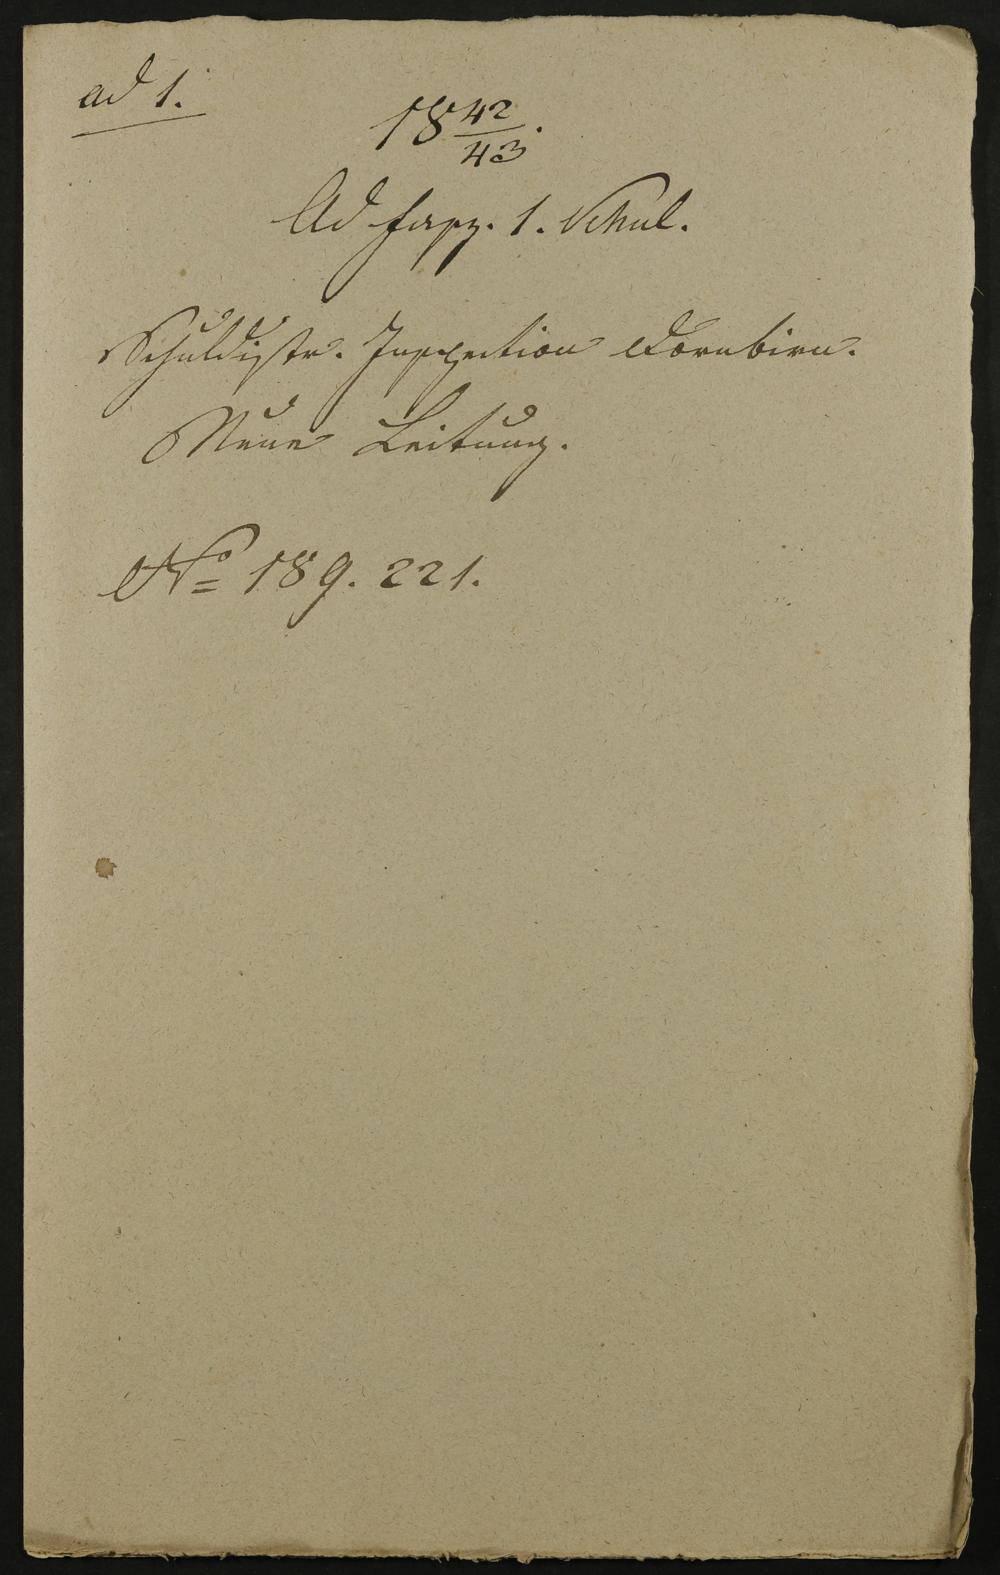 ad 1.
18 42/43.
Ad Fasz. 1. Schul.
Schuldistr. Inspection Dornbirn.
Neue Leitung.
No 189. 221.